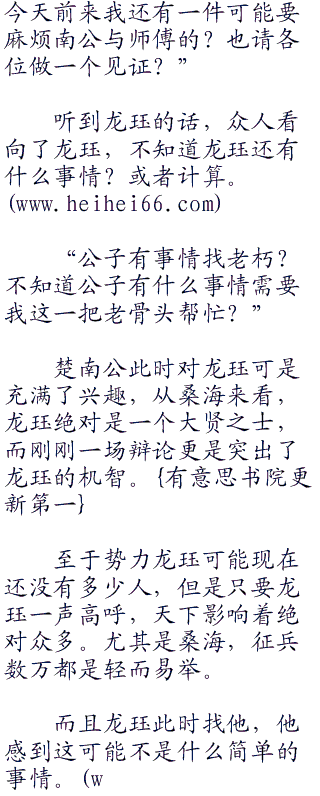 今天前来我还有一件可能要
麻烦南公与师傅的？也请各
位做一个见证？”
听到龙珏的话，众人看
向了龙珏，不知道龙珏还有
什么事情？或者计算。
(www.heihei66.com)
“公子有事情找老朽？
不知道公子有什么事情需要
我这一把老骨头帮忙？”
楚南公此时对龙珏可是
充满了兴趣，从桑海来看，
龙珏绝对是一个大贤之士，
而刚刚一场辩论更是突出了
龙珏的机智。{有意思书院更
新第一}
至于势力龙珏可能现在
还没有多少人，但是只要龙
珏一声高呼，天下影响着绝
对众多。尤其是桑海，征兵
数万都是轻而易举。
而且龙珏此时找他，他
感到这可能不是什么简单的
事情。(w